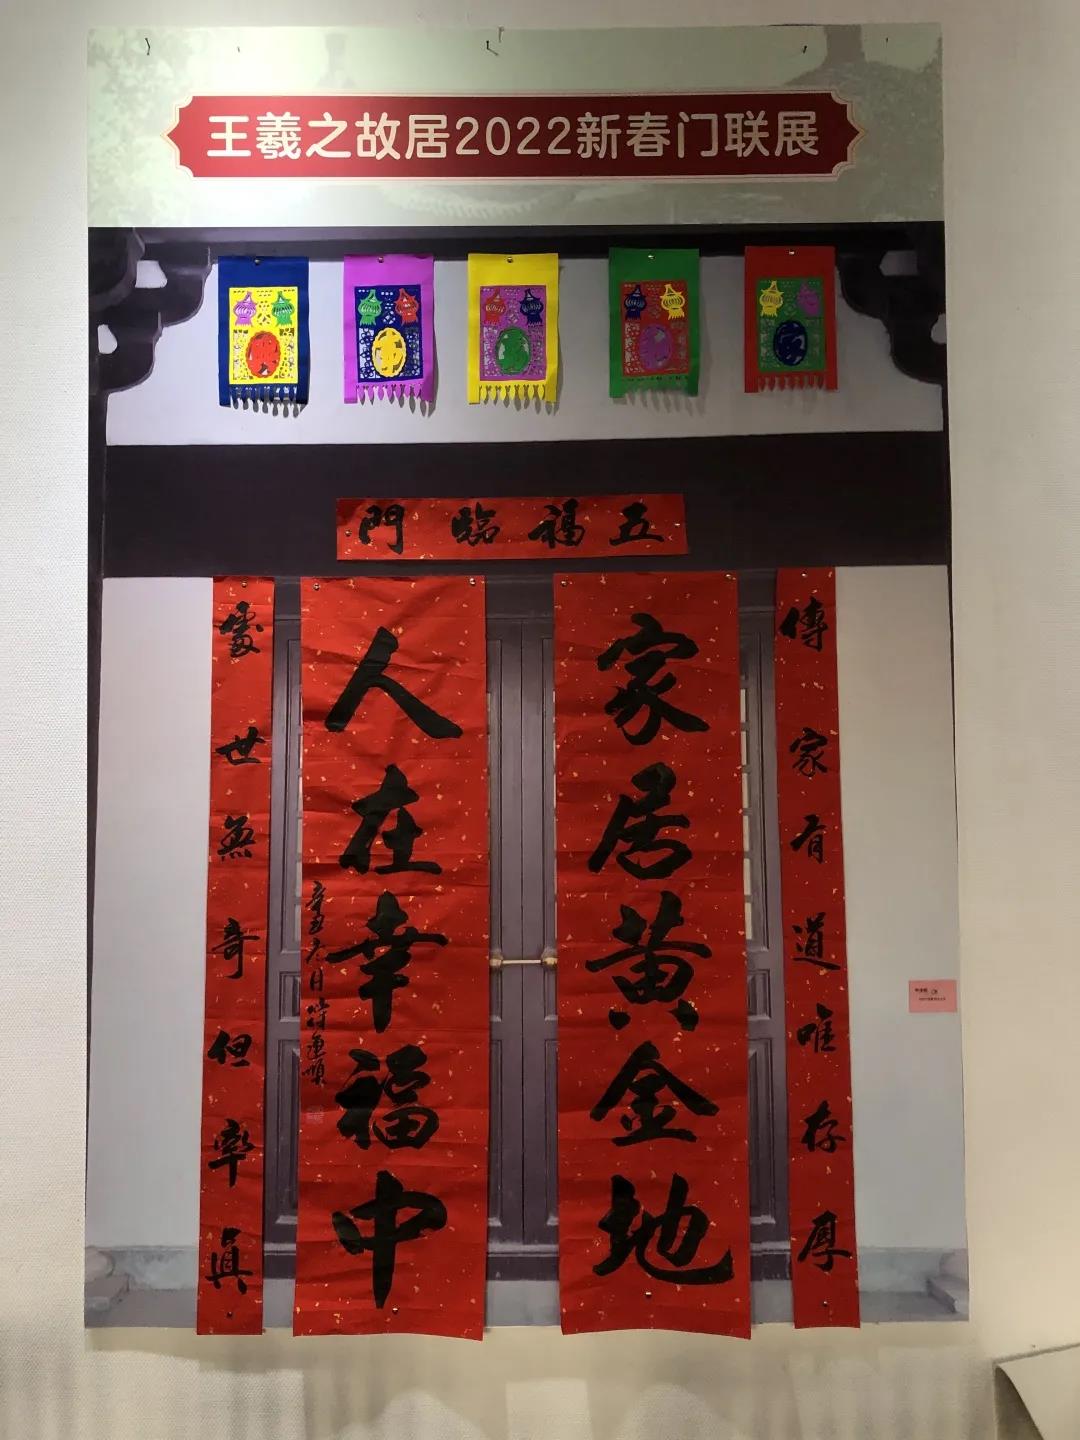 王羲之故居2022新春门联展
五福臨門
傳家有道唯存厚
家居黄金地
人在幸福中
處世無奇但率真